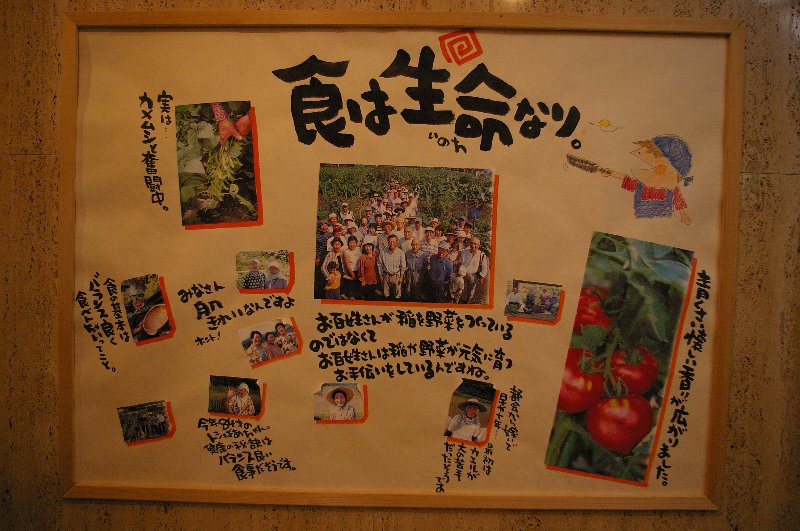 食は生命なり。
いのち
実は…
カメムシと奮闘中。
みなさん
肌
きれいなんですよ
ホント!
食の基本は
バランス良く
食べるといってこと。
お百姓さんが稲を野菜をつくっている
のではなくて
お百姓さんは稲や野菜が元気に育つ
お手伝いをしているんですね。
青くさい懐しい香りが広がりました。
今年84才の
健康の秘訣は
バランス良い
食事だそうです。
都会から嫁いで
最初は
カエルが
大の苦手
だったそうです